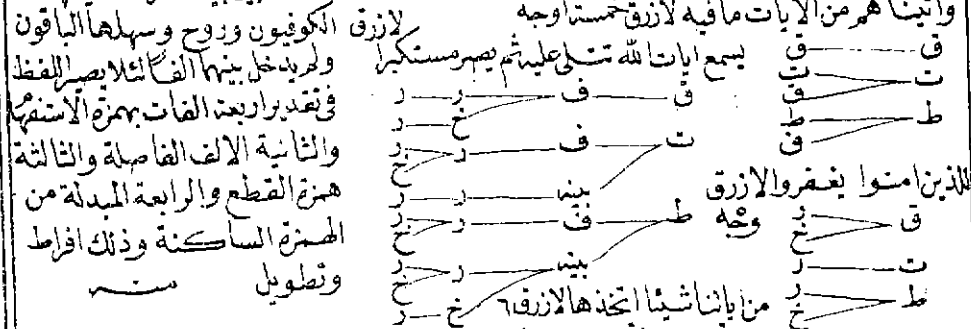 وآتيناهم من الآيات ما فيه لازرق خمسة اوجه
ق ق
ت ت
ق
ط ط
ق
للذين امنوا يغفروا لازرق
وجه
ق ر
خ
ت ر
ط ر
خ
يسمع ايات الله تتلى عليه ثم يصر مستكبرا
لازرق
ق ف ر ر
خ ر
ت ف ر ر
خ
بينه ر ر
ط ف ر ر
خ
بينه ر ر
خ
خ ر
من اياتنا شيئا اتخذها لازرق ٦
الكوفيون وروح وسهلها الباقون
ولم يدخل بينهما الفا لئلا يصير اللفظ
فى تقدير اربعة الفات بهمزة الاستفهام
والثانية الالف الفاصلة والثالثة
همزة القطع والرابعة المبدلة من
الهمزة الساكنة وذلك افراط
وتطويل